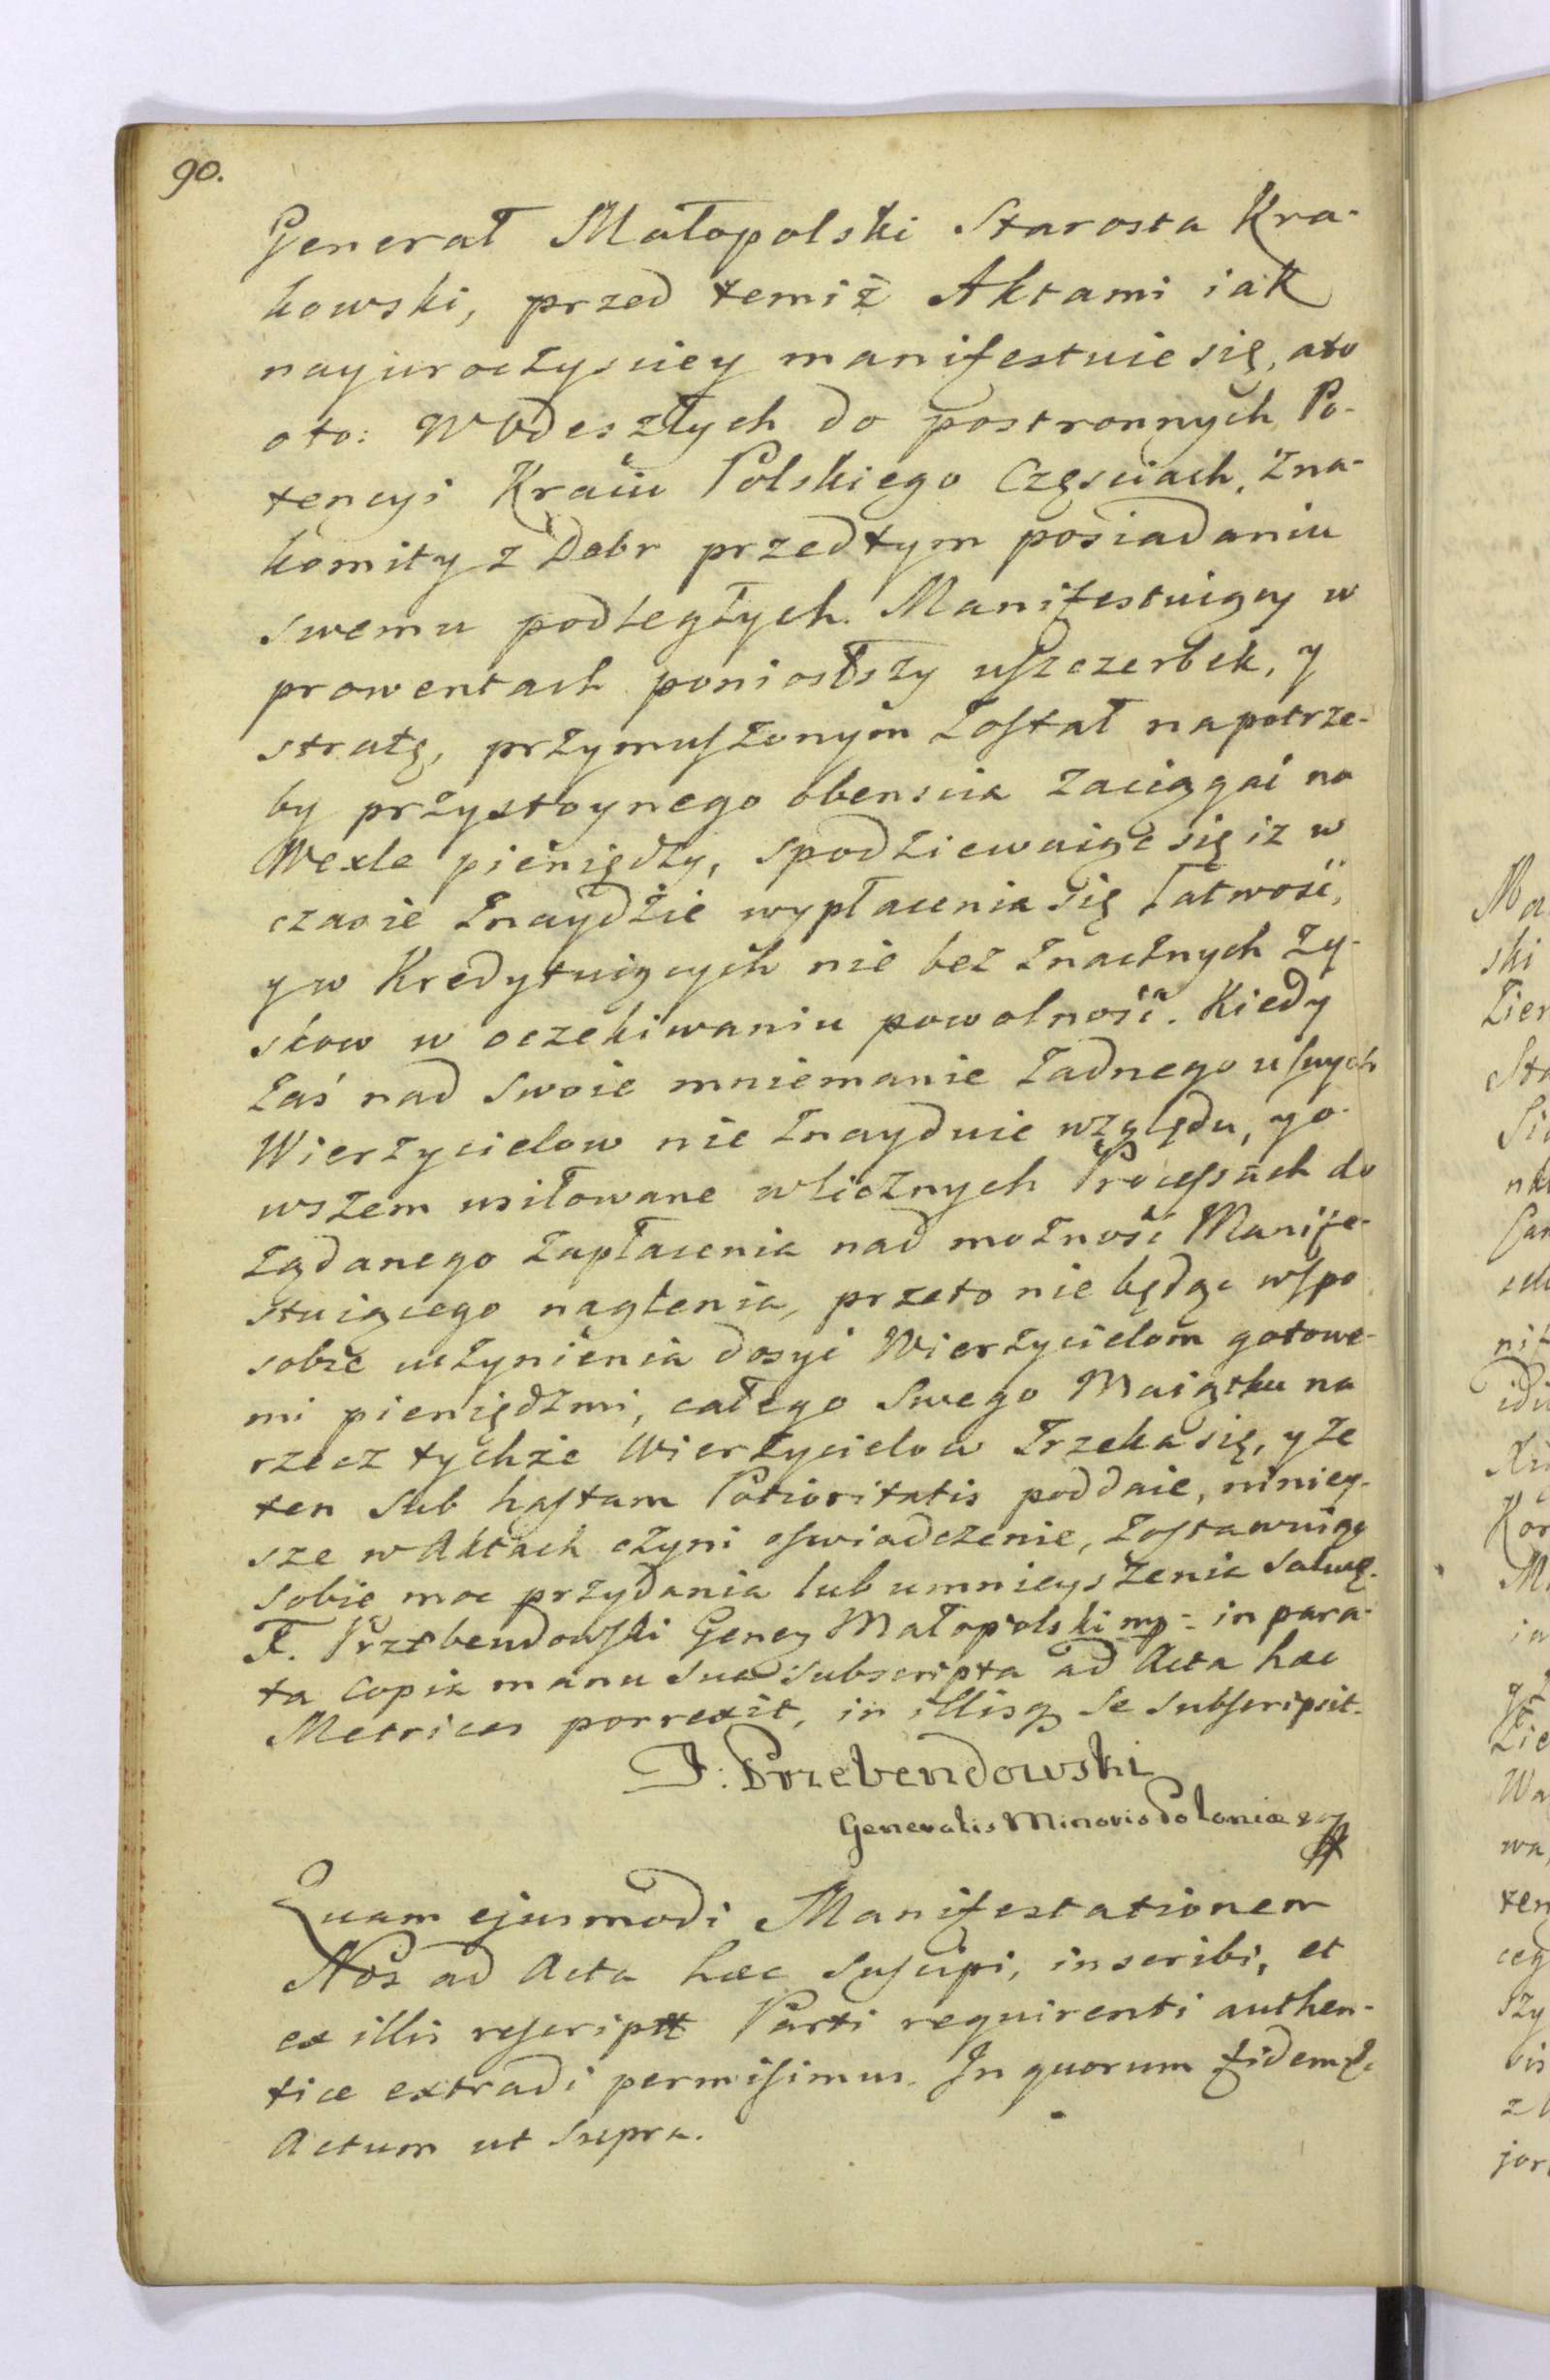 90.
Generał Małopolski Starosta Kra-
kowski, przed temiż Aktami iak
nayuroczysciey manifestuie się, ato
oto: W Odeszłych do postronnych Po-
tencyi Kraiu Polskiego Częsciach, zna-
komity z Dobr przedtym posiadaniu
swemu podległych. Manifestuiący w
prowentach poniosłszy uszczerbek, y
stratę, przymuszonym został napotrze-
by przystoynego obenscia zaciągać na
Wexle pieniędzy, spodziewaiąc się iz w
czasie znaydzie wypłacenia się łatwość,
y w Kredytuiących nie bez znacznych zy-
skow w oczekiwaniu powolność. Kiedy
zaś nad swoie mniemanie żadnego u swych
Wierzycielow nie znayduie względu, y o-
wszem usiłowane w licznych Processach do
żądanego zapłacenia nad możność Manife-
stuiącego naglenia, przeto nie będąc wspo
sobie uczynienia dosyć Wierzycielom gotowe-
mi pieniędzmi, całego Swego Maiątku na
rzecz tychże Wierzycielow zrzeka się, y że
ten Sub hastam Potioritatis poddaie, niniey-
sze w Aktach czyni oswiadczenie, zostawuiąc
sobie moc przydania lub umnieyszenia Salwę.
F. Przebendowski Gene: Małopolski mp - in para-
ta copia manu sua subscripta ad Acta hæc
Metrices porrexit, in illisq; se subscripsit.
F: Przebendowski
Generalis Minoris Poloniæ
Quam ejusmodi Manifestationem
Nos ad Acta hæc suscipi, inscribi, et
ex illis rescriptt Parti requirenti authen-
ticæ extradi permisimus. In quorum fidem &c
Actum ut supra.